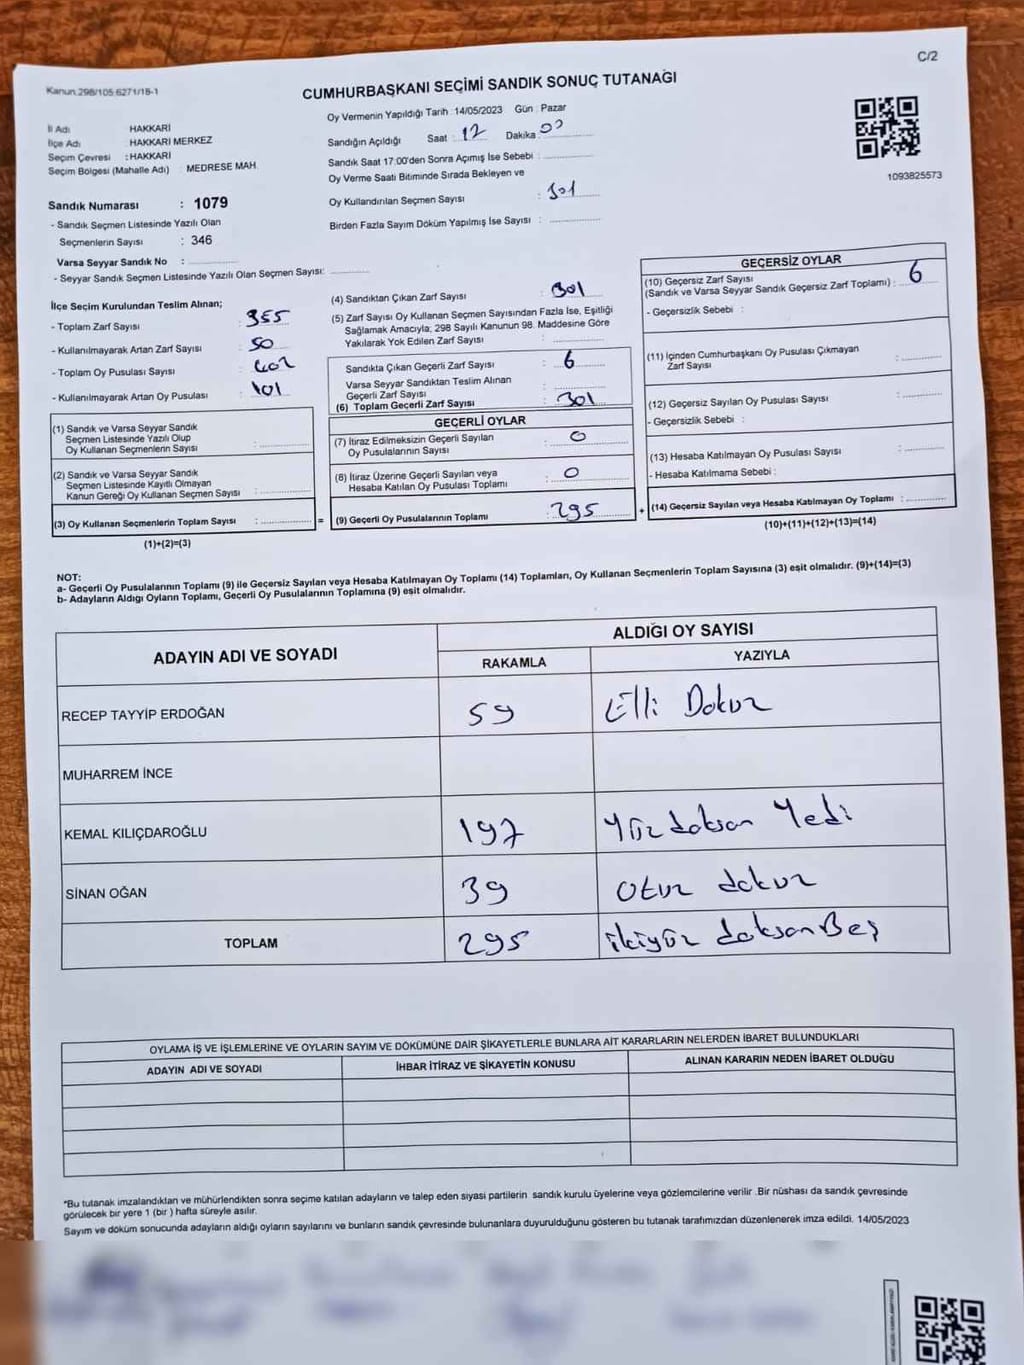 C/2
Kanun.298/105-6271/18-1
CUMHURBAŞKANI SEÇİMİ SANDIK SONUÇ TUTANAĞI
İl Adı HAKKARİ
İlçe Adı HAKKARİ MERKEZ
Seçim Çevresi :HAKKARİ
Seçim Bölgesi (Mahalle Adı) : MEDRESE MAH.
Sandık Numarası : 1079
- Sandık Seçmen Listesinde Yazılı Olan
Seçmenlerin Sayısı : 346
Varsa Seyyar Sandık No :
- Seyyar Sandık Seçmen Listesinde Yazılı Olan Seçmen Sayısı:
Oy Vermenin Yapıldığı Tarih :14/05/2023 Gün : Pazar
Sandığın Açıldığı Saat : 17 Dakika : 00
Sandık Saat 17:00'den Sonra Açımış İse Sebebi :
Oy Verme Saati Bitiminde Sırada Bekleyen ve
Oy Kullandırılan Seçmen Sayısı : 301
Birden Fazla Sayım Döküm Yapılmış İse Sayısı :
1093825573
İlçe Seçim Kurulundan Teslim Alınan;
- Toplam Zarf Sayısı : 355
- Kullanılmayarak Artan Zarf Sayısı : 50
- Toplam Oy Pusulası Sayısı : 402
- Kullanılmayarak Artan Oy Pusulası : 101
(1) Sandık ve Varsa Seyyar Sandık
Seçmen Listesinde Yazılı Olup
Oy Kullanan Seçmenlerin Sayısı :
(2) Sandık ve Varsa Seyyar Sandık
Seçmen Listesinde Kayıtlı Olmayan
Kanun Gereği Oy Kullanan Seçmen Sayısı :
(3) Oy Kullanan Seçmenlerin Toplam Sayısı : =
(1)+(2)=(3)
(4) Sandıktan Çıkan Zarf Sayısı : 301
(5) Zarf Sayısı Oy Kullanan Seçmen Sayısından Fazla İse, Eşitliği
Sağlamak Amacıyla; 298 Sayılı Kanunun 98. Maddesine Göre
Yakılarak Yok Edilen Zarf Sayısı :
Sandıkta Çıkan Geçerli Zarf Sayısı : 6
Varsa Seyyar Sandıktan Teslim Alınan
Geçerli Zarf Sayısı :
(6) Toplam Geçerli Zarf Sayısı : 301
GEÇERLİ OYLAR
(7) İtiraz Edilmeksizin Geçerli Sayılan
Oy Pusulasının Sayısı : 0
(8) İtiraz Üzerine Geçerli Sayılan veya
Hesaba Katılan Oy Pusulası Toplamı : 0
(9) Geçerli Oy Pusulalarının Toplamı : 295 +
GEÇERSİZ OYLAR
(10) Geçersiz Zarf Sayısı
(Sandık ve Varsa Seyyar Sandık Geçersiz Zarf Toplamı) : 6
- Geçersizlik Sebebi :
(11) İçinden Cumhurbaşkanı Oy Pusulası Çıkmayan
Zarf Sayısı :
(12) Geçersiz Sayılan Oy Pusulası Sayısı :
- Geçersizlik Sebebi :
(13) Hesaba Katılmayan Oy Pusulası Sayısı :
- Hesaba Katılmama Sebebi :
(14) Geçersiz Sayılan veya Hesaba Katılmayan Oy Toplamı :
(10)+(11)+(12)+(13)=(14)
NOT:
a- Geçerli Oy Pusulalarının Toplamı (9) ile Geçersiz Sayılan veya Hesaba Katılmayan Oy Toplamı (14) Toplamları, Oy Kullanan Seçmenlerin Toplam Sayısına (3) eşit olmalıdır. (9)+(14)=(3)
b- Adayların Aldığı Oyların Toplamı, Geçerli Oy Pusulalarının Toplamına (9) eşit olmalıdır.
ADAYIN ADI VE SOYADI ALDIĞI OY SAYISI
RAKAMLA YAZIYLA
RECEP TAYYİP ERDOĞAN 59 Elli Dokuz
MUHARREM İNCE
KEMAL KILIÇDAROĞLU 197 Yüz doksan Yedi
SİNAN OĞAN 39 Otuz dokuz
TOPLAM 295 ikiyüz doksanBeş
OYLAMA İŞ VE İŞLEMLERİNE VE OYLARIN SAYIM VE DÖKÜMÜNE DAİR ŞİKAYETLERLE BUNLARA AİT KARARLARIN NELERDEN İBARET BULUNDUKLARI
ADAYIN ADI VE SOYADI İHBAR İTİRAZ VE ŞİKAYETİN KONUSU ALINAN KARARIN NEDEN İBARET OLDUĞU
*Bu tutanak imzalandıktan ve mühürlendikten sonra seçime katılan adayların ve talep eden siyasi partilerin sandık kurulu üyelerine veya gözlemcilerine verilir .Bir nüshası da sandık çevresinde
görülecek bir yere 1 (bir ) hafta süreyle asılır.
Sayım ve döküm sonucunda adayların aldığı oyların sayılarını ve bunların sandık çevresinde bulunanlara duyurulduğunu gösteren bu tutanak tarafımızdan düzenlenerek imza edildi. 14/05/2023